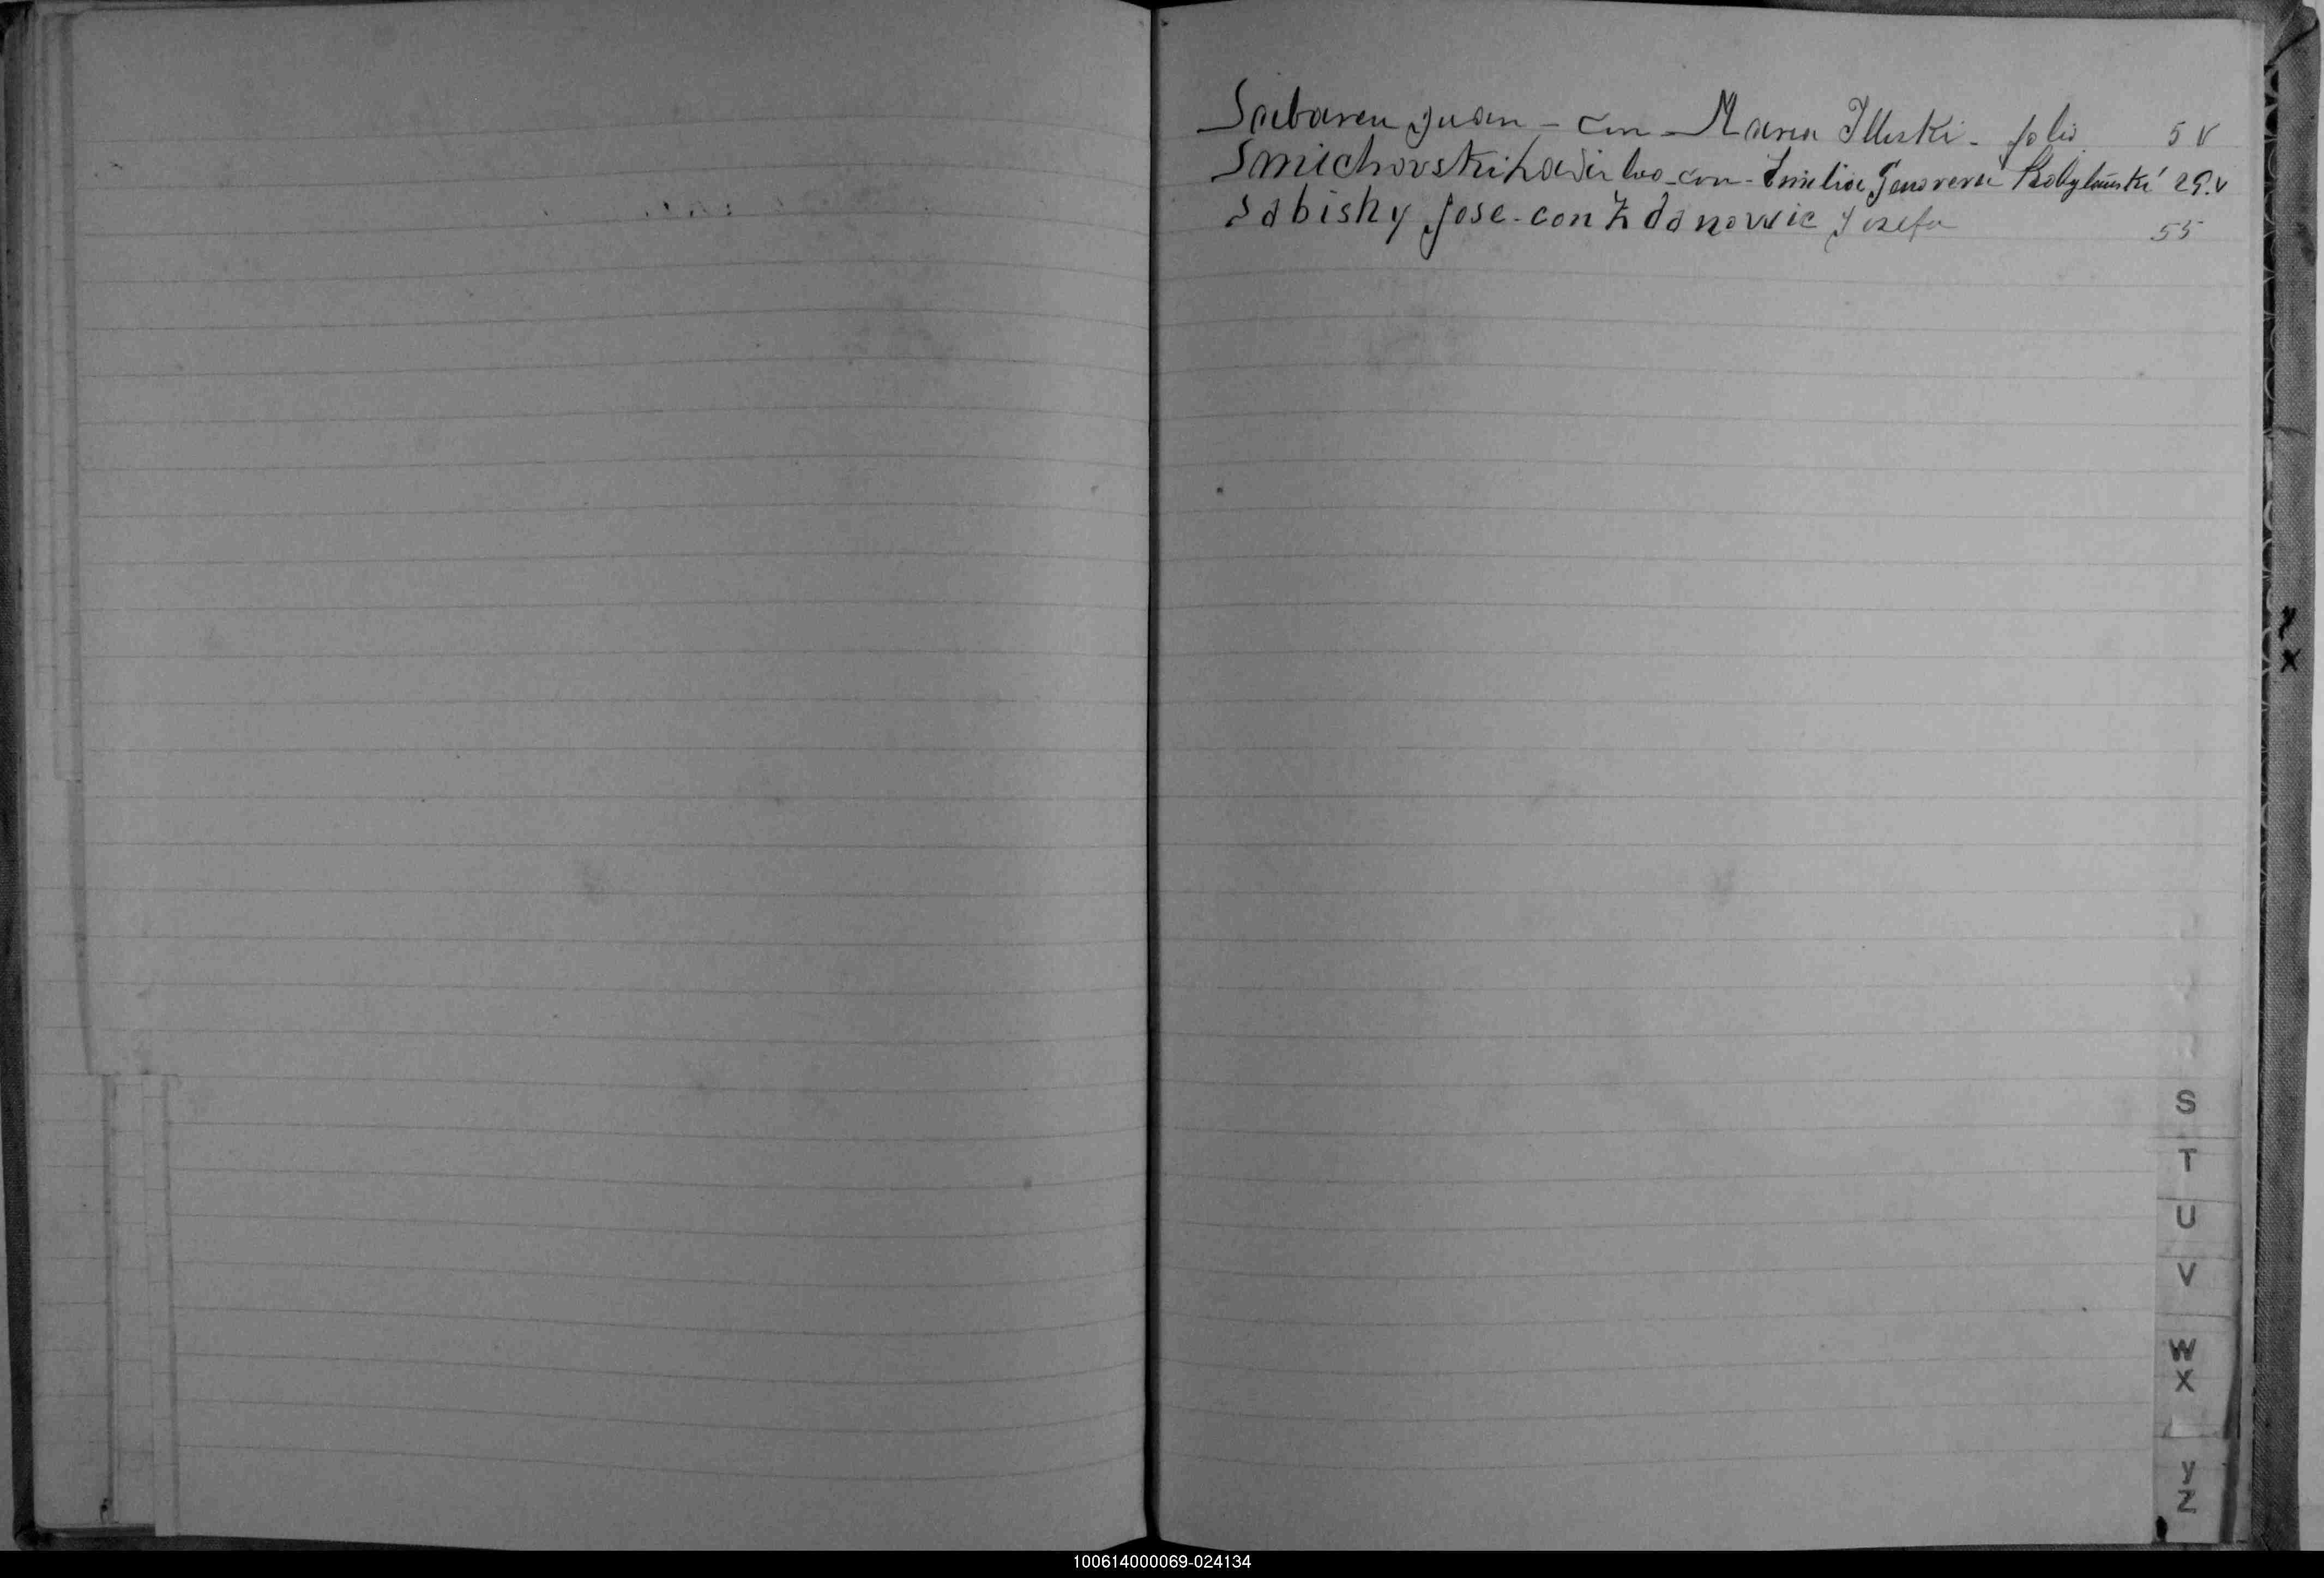 Sabaren Juan - con - Maria Illuski - folio 5 v
Smichovski Ladislao - con - Emilia Genoveva Kobylański 29.v
Sabisky Jose - con Zdanowic Josefa 55
S
T
U
V
W
X
y
Z
y
x
100614000069-024134